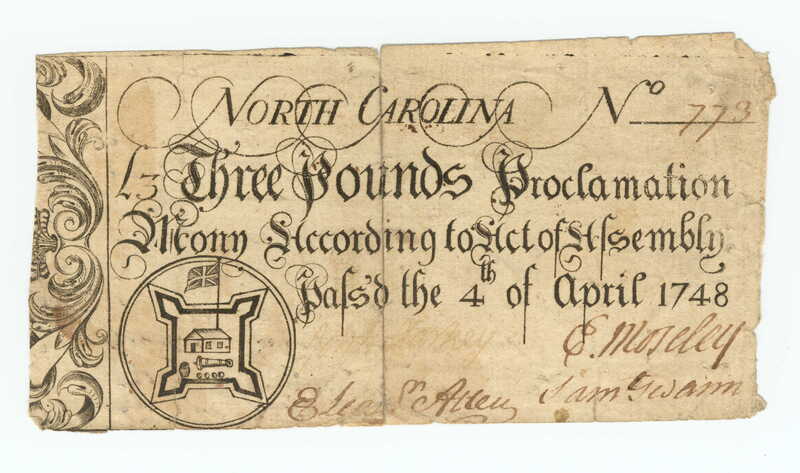 NORTH CAROLINA No 773
£3 Three Pounds Proclamation
Mony According to Act of Aſsembly
Paſs'd the 4th of April 1748
E. Moseley
Eleazr Allen Saml Swann